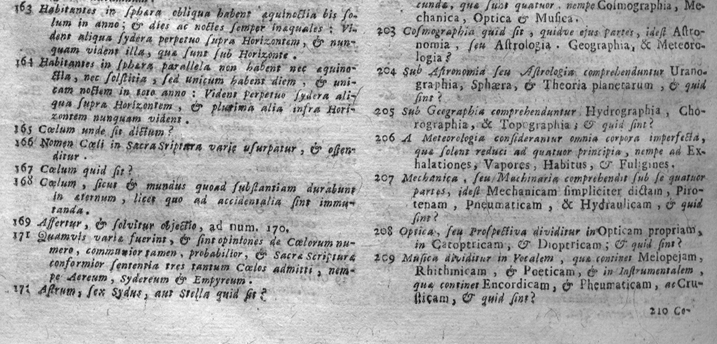 163 Habitantes in sphæra obliqua habent æquinoctia bis so-
lum in anno; & dies ac noctes semper inæquales: Vi-
dent aliqua sydera perpetuo supra Horizontem, & nun-
quam vident illa, quæ sunt sub Horizonte.
164 Habitantes in sphæra parallela non habent nec æquino-
ctia, nec solstitia, sed unicum habent diem, & uni-
cam noctem in toto anno: Vident perpetuo sydera ali-
qua supra Horizontem, & plurima alia infra Hori-
zontem nunquam vident.
165 Cœlum unde sit dictum?
166 Nomen Cœli in Sacra Scriptura varie usurpatur, & osten-
ditur.
167 Cœlum quid sit?
168 Cœlum, sicut & mundus quoad substantiam durabunt
in æternum, licet quo ad accidentalia sint immu-
tanda.
169 Affertur, & solvitur objectio, ad num. 170.
171 Quamvis variæ fuerint, & sint opiniones de Cœlorum nu-
mero, communior tamen, probabilior, & Sacræ Scripturæ
conformior sententia tres tantum Cœlos admitti, nem-
pe Aereum, Sydereum & Empyreum.
172 Astrum, seu Sydus, aut Stella quid sit?
cundæ, quæ sunt quatuor, nempe Cosmographia, Me-
chanica, Optica & Musica.
203 Cosmographia quid sit, quidve ejus partes, idest Astro-
nomia, seu Astrologia. Geographia, & Meteoro-
logia?
204 Sub Astronomia seu Astrologia comprehenduntur Urano-
graphia, Sphæra, & Theoria planetarum, & quid
sint?
205 Sub Geographia comprehenduntur Hydrographia, Cho-
rographia, & Topographia; & quid sint?
206 A Meteorologia considerantur omnia corpora imperfecta,
quæ solent reduci ad quatuor principia, nempe ad Ex-
halationes, Vapores, Habitus, & Fuligines.
207 Mechanica, seu Machinaria comprehendit sub se quatuor
partes, idest Mechanicam simpliciter dictam, Piro-
tenam, Pneumaticam, & Hydraulicam, & quid
sint?
208 Optica, seu Prospectiva dividitur in Opticam propriam,
in Catoptricam, & Dioptricam; & quid sit?
209 Musica dividitur in Vocalem, quæ continet Melopejam,
Rhithmicam, & Poeticam, & in Instrumentalem,
quæ continet Encordicam, & Pneumaticam, ac Cru-
sticam, & quid sint?
210 Co-